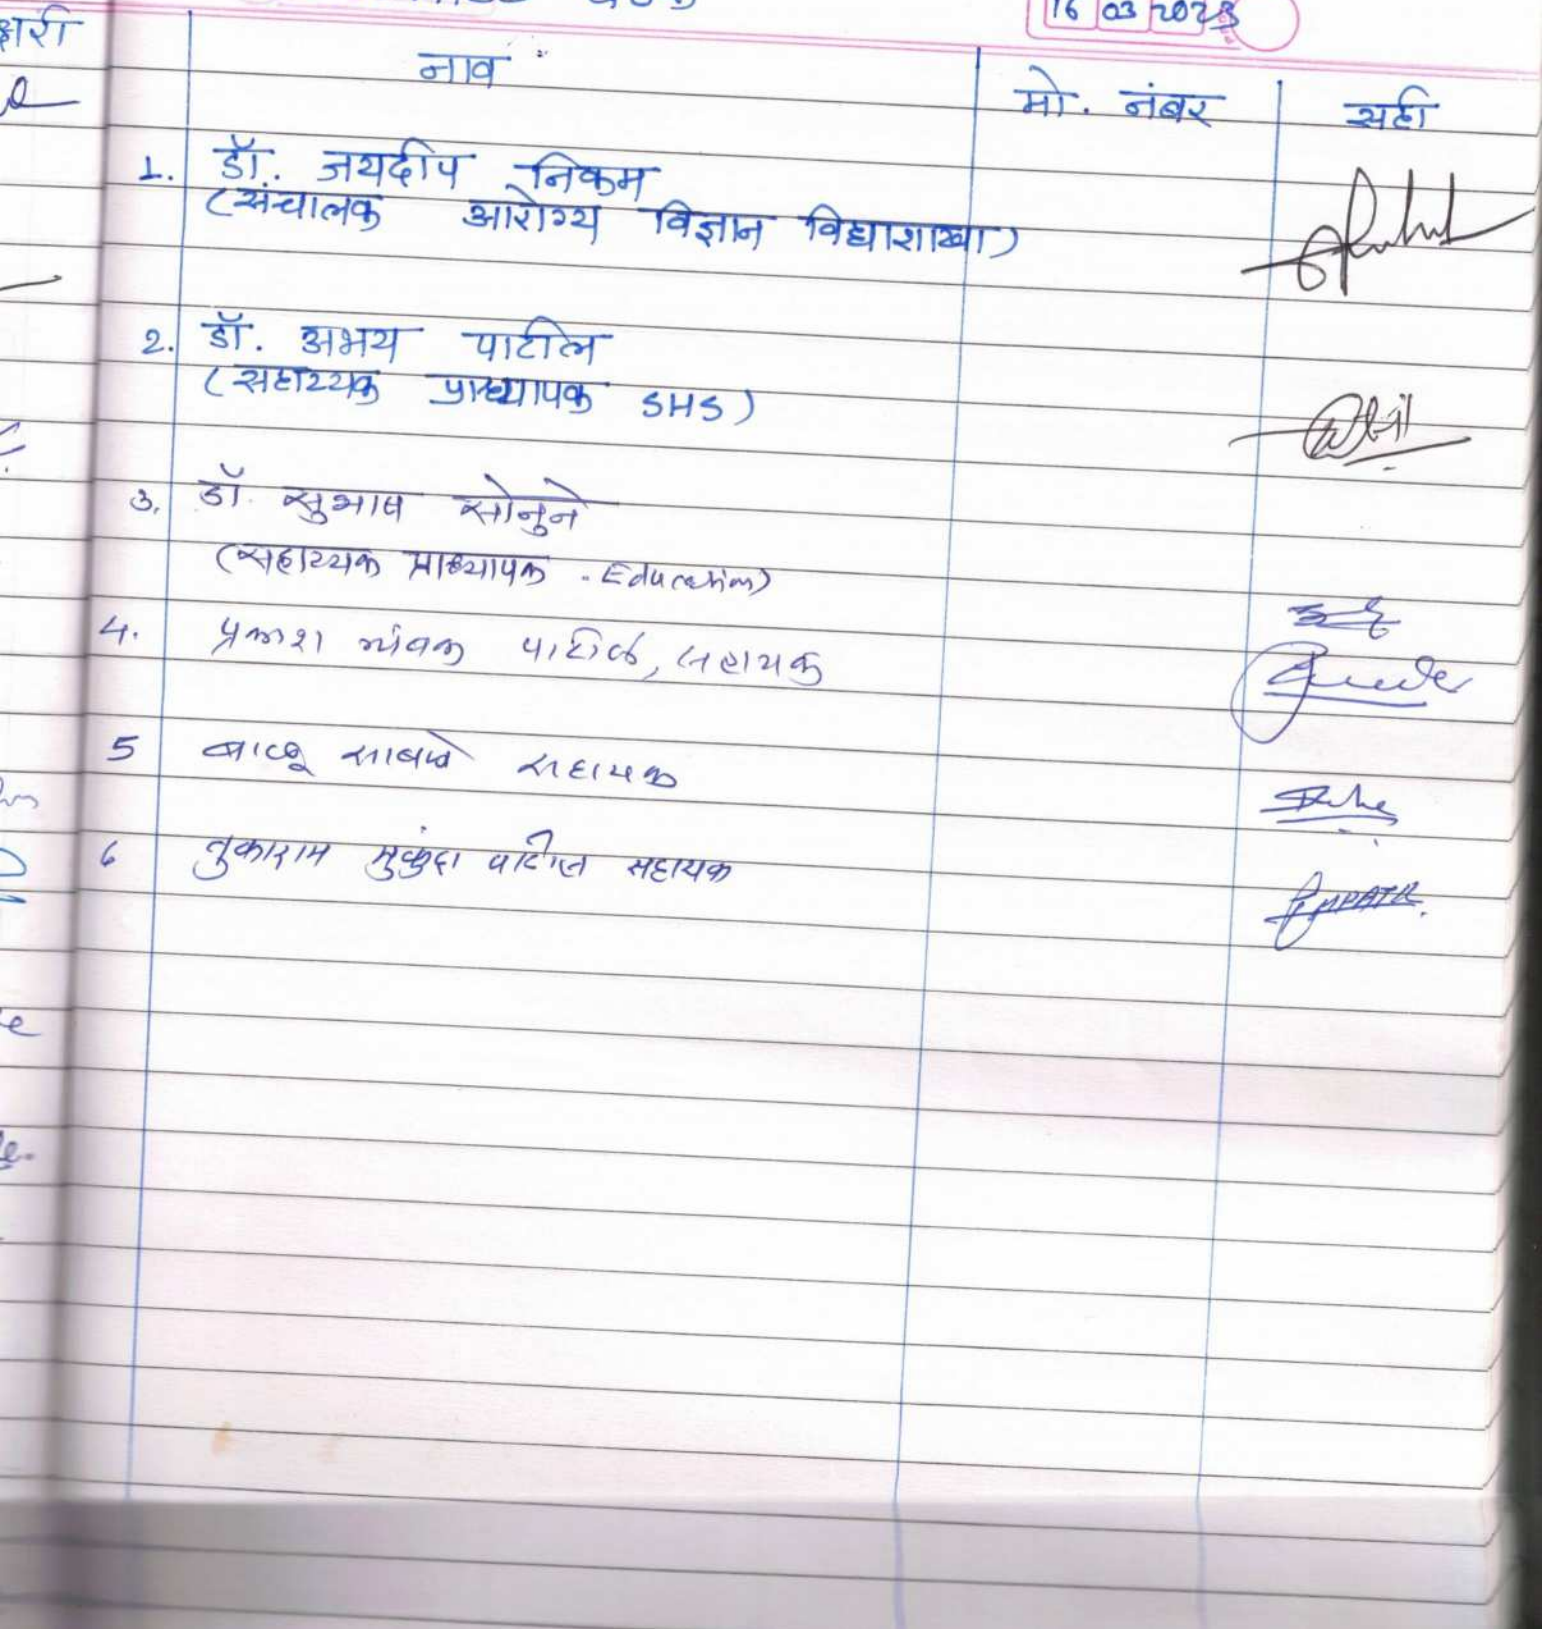 16 03 2023
नाव मो. नंबर सही
1. डॉ. जयदीप निकम
(संचालक आरोग्य विज्ञान विद्याशाखा)
2. डॉ. अभय पाटील
(सहाय्यक प्राध्यापक SHS)
3. डॉ. सुभाष सोनुने
(सहाय्यक प्राध्यापक - Education)
4. प्रकाश त्र्यंबक पाटील, सहायक
5 बाळू साबळे सहायक
6 तुकाराम मुकुंदा पाटील सहायक